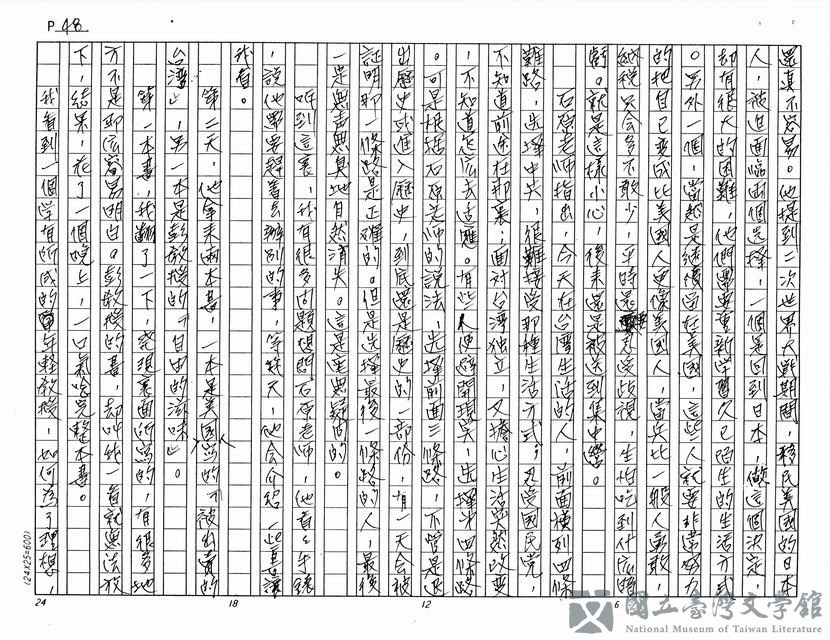 P 48
還真不容易。他提到二次世界大戰期間，移民美國的日本
人，被迫面臨兩個選擇，一個是回到日本，做這個決定，
却有很大的困難，他們需要重新學習久已陌生的生活方式
。另外一個，當然是繼續留在美國，這些人就要非常努力
的把自己變成比美國人更像美國人，當兵比一般人勇敢，
納税只会多不敢少，平時還忍受歧視，生怕吃到什広暗
虧。就是這樣小心，後来還是被送到集中營。
石原老師指出，今天在台灣生活的人，前面橫列四條
難路，選擇中共，很難接受那種生活方式，忍受國民党，
不知道前途在那裏，面对台湾独立，又擔心生活突然改变
，不知道怎広去适應。有些人便睁開現实，选擇第四條路
。可是根據石原老师的説法，选擇前面三條路，不管是退
出歷史或進入歷史，到底還是歷史的一部份，有一天会被
証明那一條路是正確的。但是选擇最後一條路的人，最後
一定無声無臭地自然消失。這是毫無疑問的。
听到這裏，我有很多问題想問石原老师，他看々手錶
，說他要趕着去辦别的事，等幾天，他会介绍一些書讓
我看。
第二天，他拿来兩本書，一本是美國人写的『被出賣的
台湾』，另一本是彭教授的『自由的滋味』。
第一本書，我翻了一下，發現裏面所写的，有很多地
方不是那広容易明白。彭教授的書，却叫我一看就無法放
下，結果，花了一個晚上，一口氣唸完整本書。
我看到一個学有所成的年輕教授，如何為了理想，
24
18
12
6
(24×25=600)
國立臺灣文學館
National Museum of Taiwan Literature